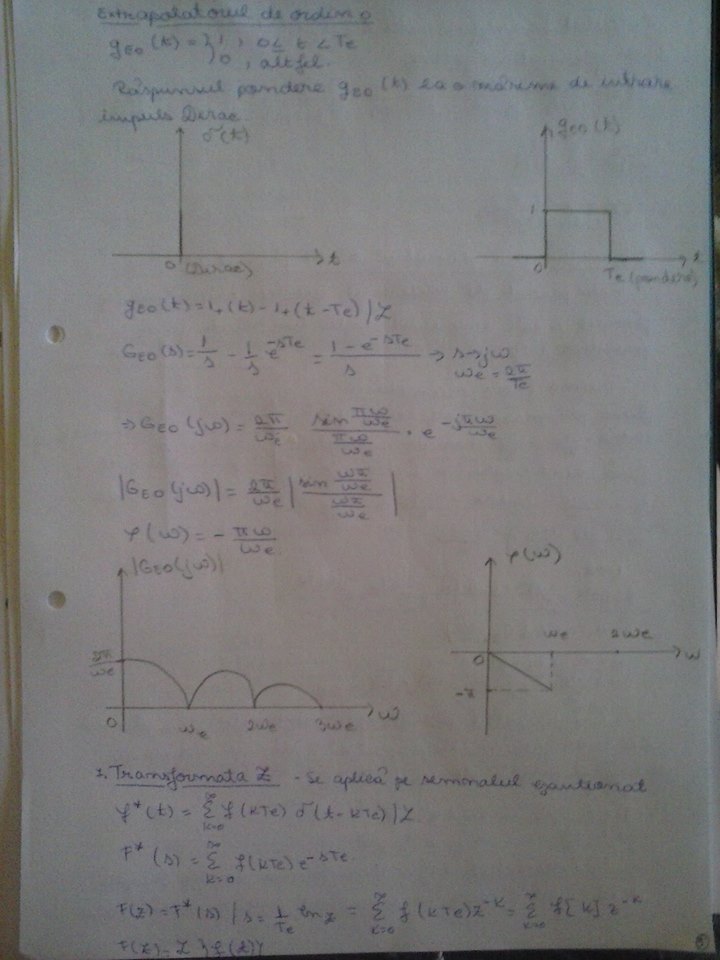 Extrapolatorul de ordin 0
g_E0(t) = { 1 , 0 ≤ t < Te
0 , altfel.
Răspunsul pondere g_E0(t) la o mărime de intrare
impuls Dirac.
δ(t)
g_E0(t)
1
0 (Dirac) t
0 Te (pondere) t
g_E0(t) = 1+(t) - 1+(t-Te) | L
G_E0(s) = 1/s - 1/s e^-sTe = (1 - e^-sTe)/s → s→jω
ωe = 2π/Te
⇒ G_E0(jω) = 2π/ωe (sin πω/ωe)/(πω/ωe) · e^-jπω/ωe
|G_E0(jω)| = 2π/ωe |(sin ωπ/ωe)/(ωπ/ωe)|
φ(ω) = - πω/ωe
|G_E0(jω)|
φ(ω)
0 ωe 2ωe ω
2π/ωe
-π
0 ωe 2ωe 3ωe ω
1. Transformata Z - Se aplică pe semnalul eșantionat
f*(t) = Σ_{k=0}^∞ f(kTe) δ(t-kTe) | L
F*(s) = Σ_{k=0}^∞ f(kTe) e^-sTe
F(z) = F*(s) | s = 1/Te ln z = Σ_{k=0}^∞ f(kTe) z^-k = Σ_{k=0}^∞ f[k] z^-k
F(z) = Z {f(t)}